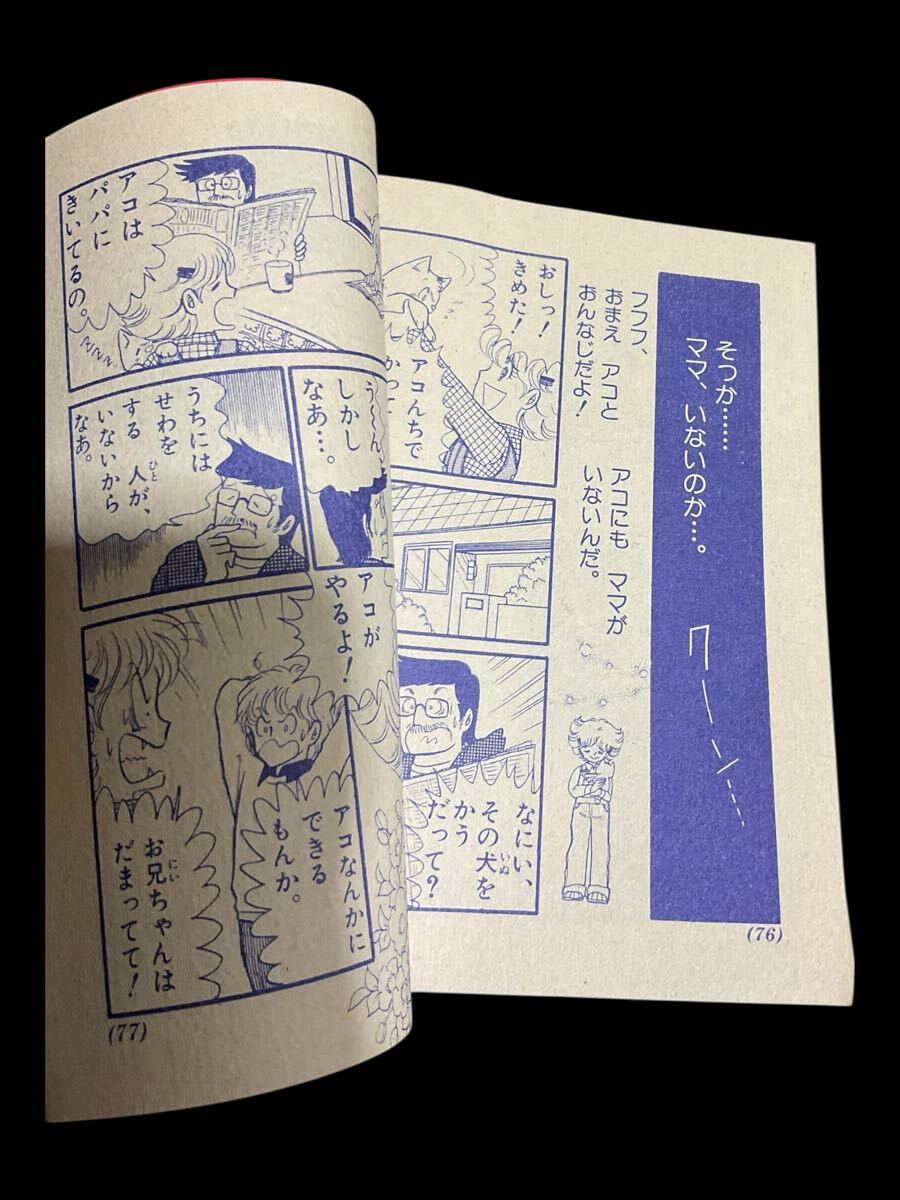 そつか……
ママ、いないのか…。
クーン…
フフフ、
おまえ アコと
おんなじだよ！
アコにも ママが
いないんだ。
おしっ！
きめた！
アコんちで
かって
なにい、
その犬を
いぬ
かう
だって？
(76)
アコは
パパに
きいてるの。
う～ん、
しかし
なあ…。
うちには
せわを
する 人が、
ひと
いないから
なあ。
アコが
やるよ！
アコなんかに
できる
もんか。
お兄ちゃんは
にい
だまってて！
(77)